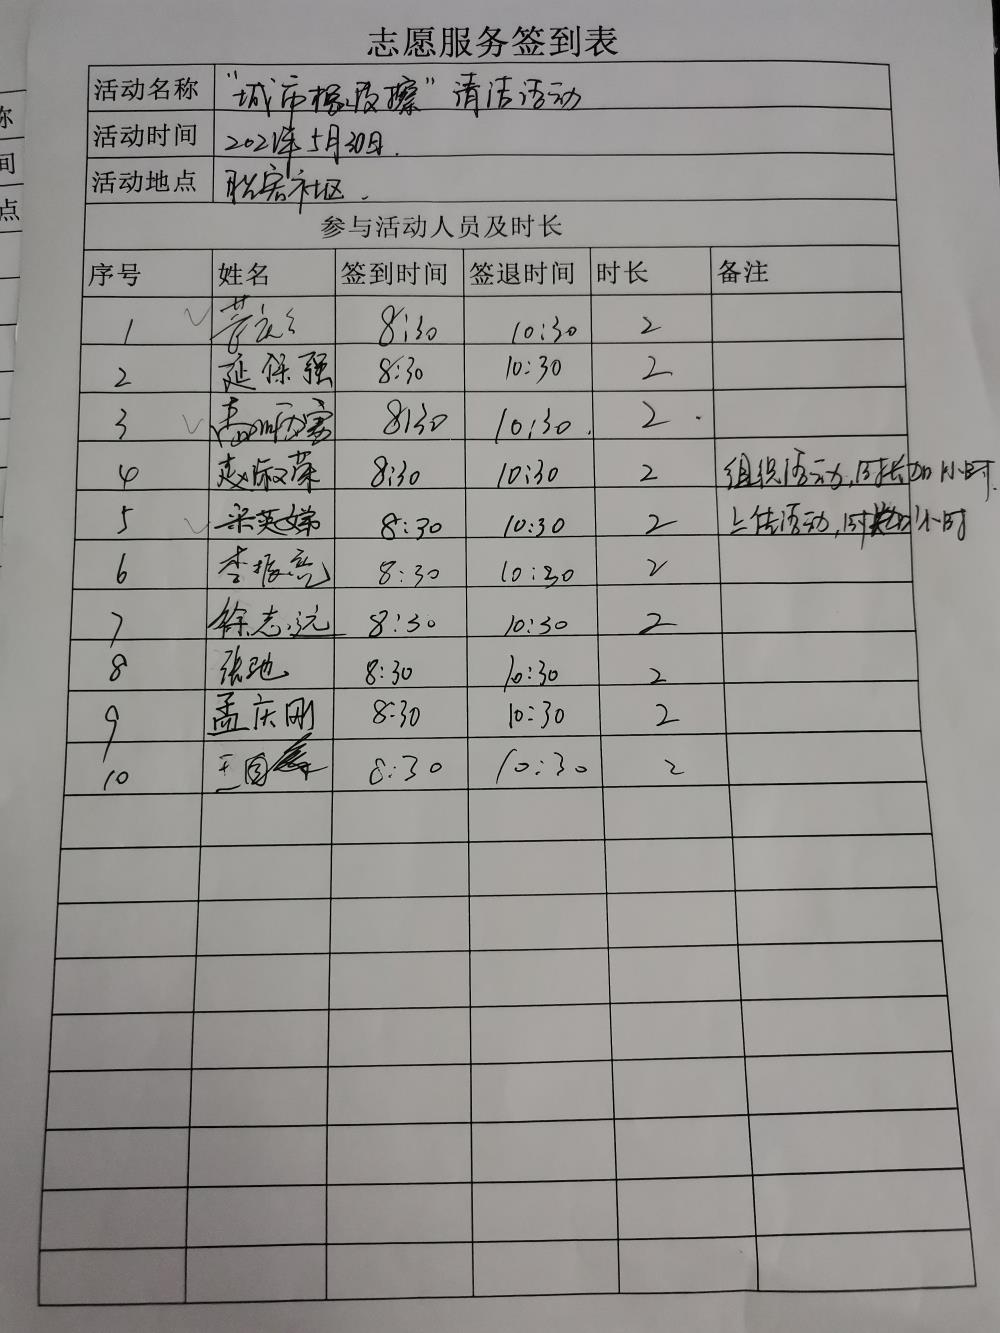 志愿服务签到表
活动名称 “城市橡皮擦”清洁活动
活动时间 2021年5月30日.
活动地点 社区.
参与活动人员及时长
序号 姓名 签到时间 签退时间 时长 备注
1 8:30 10:30 2
2 延保强 8:30 10:30 2
3 8:30 10:30. 2
4 赵淑荣 8:30 10:30 2 组织活动,时长加1小时.
5 英娣 8:30 10:30 2 上传活动,时长加1小时
6 李振亮 8:30 10:30 2
7 徐志远 8:30 10:30 2
8 张弛 8:30 10:30 2
9 孟庆刚 8:30 10:30 2
10 王国 8:30 10:30 2
称
间
点